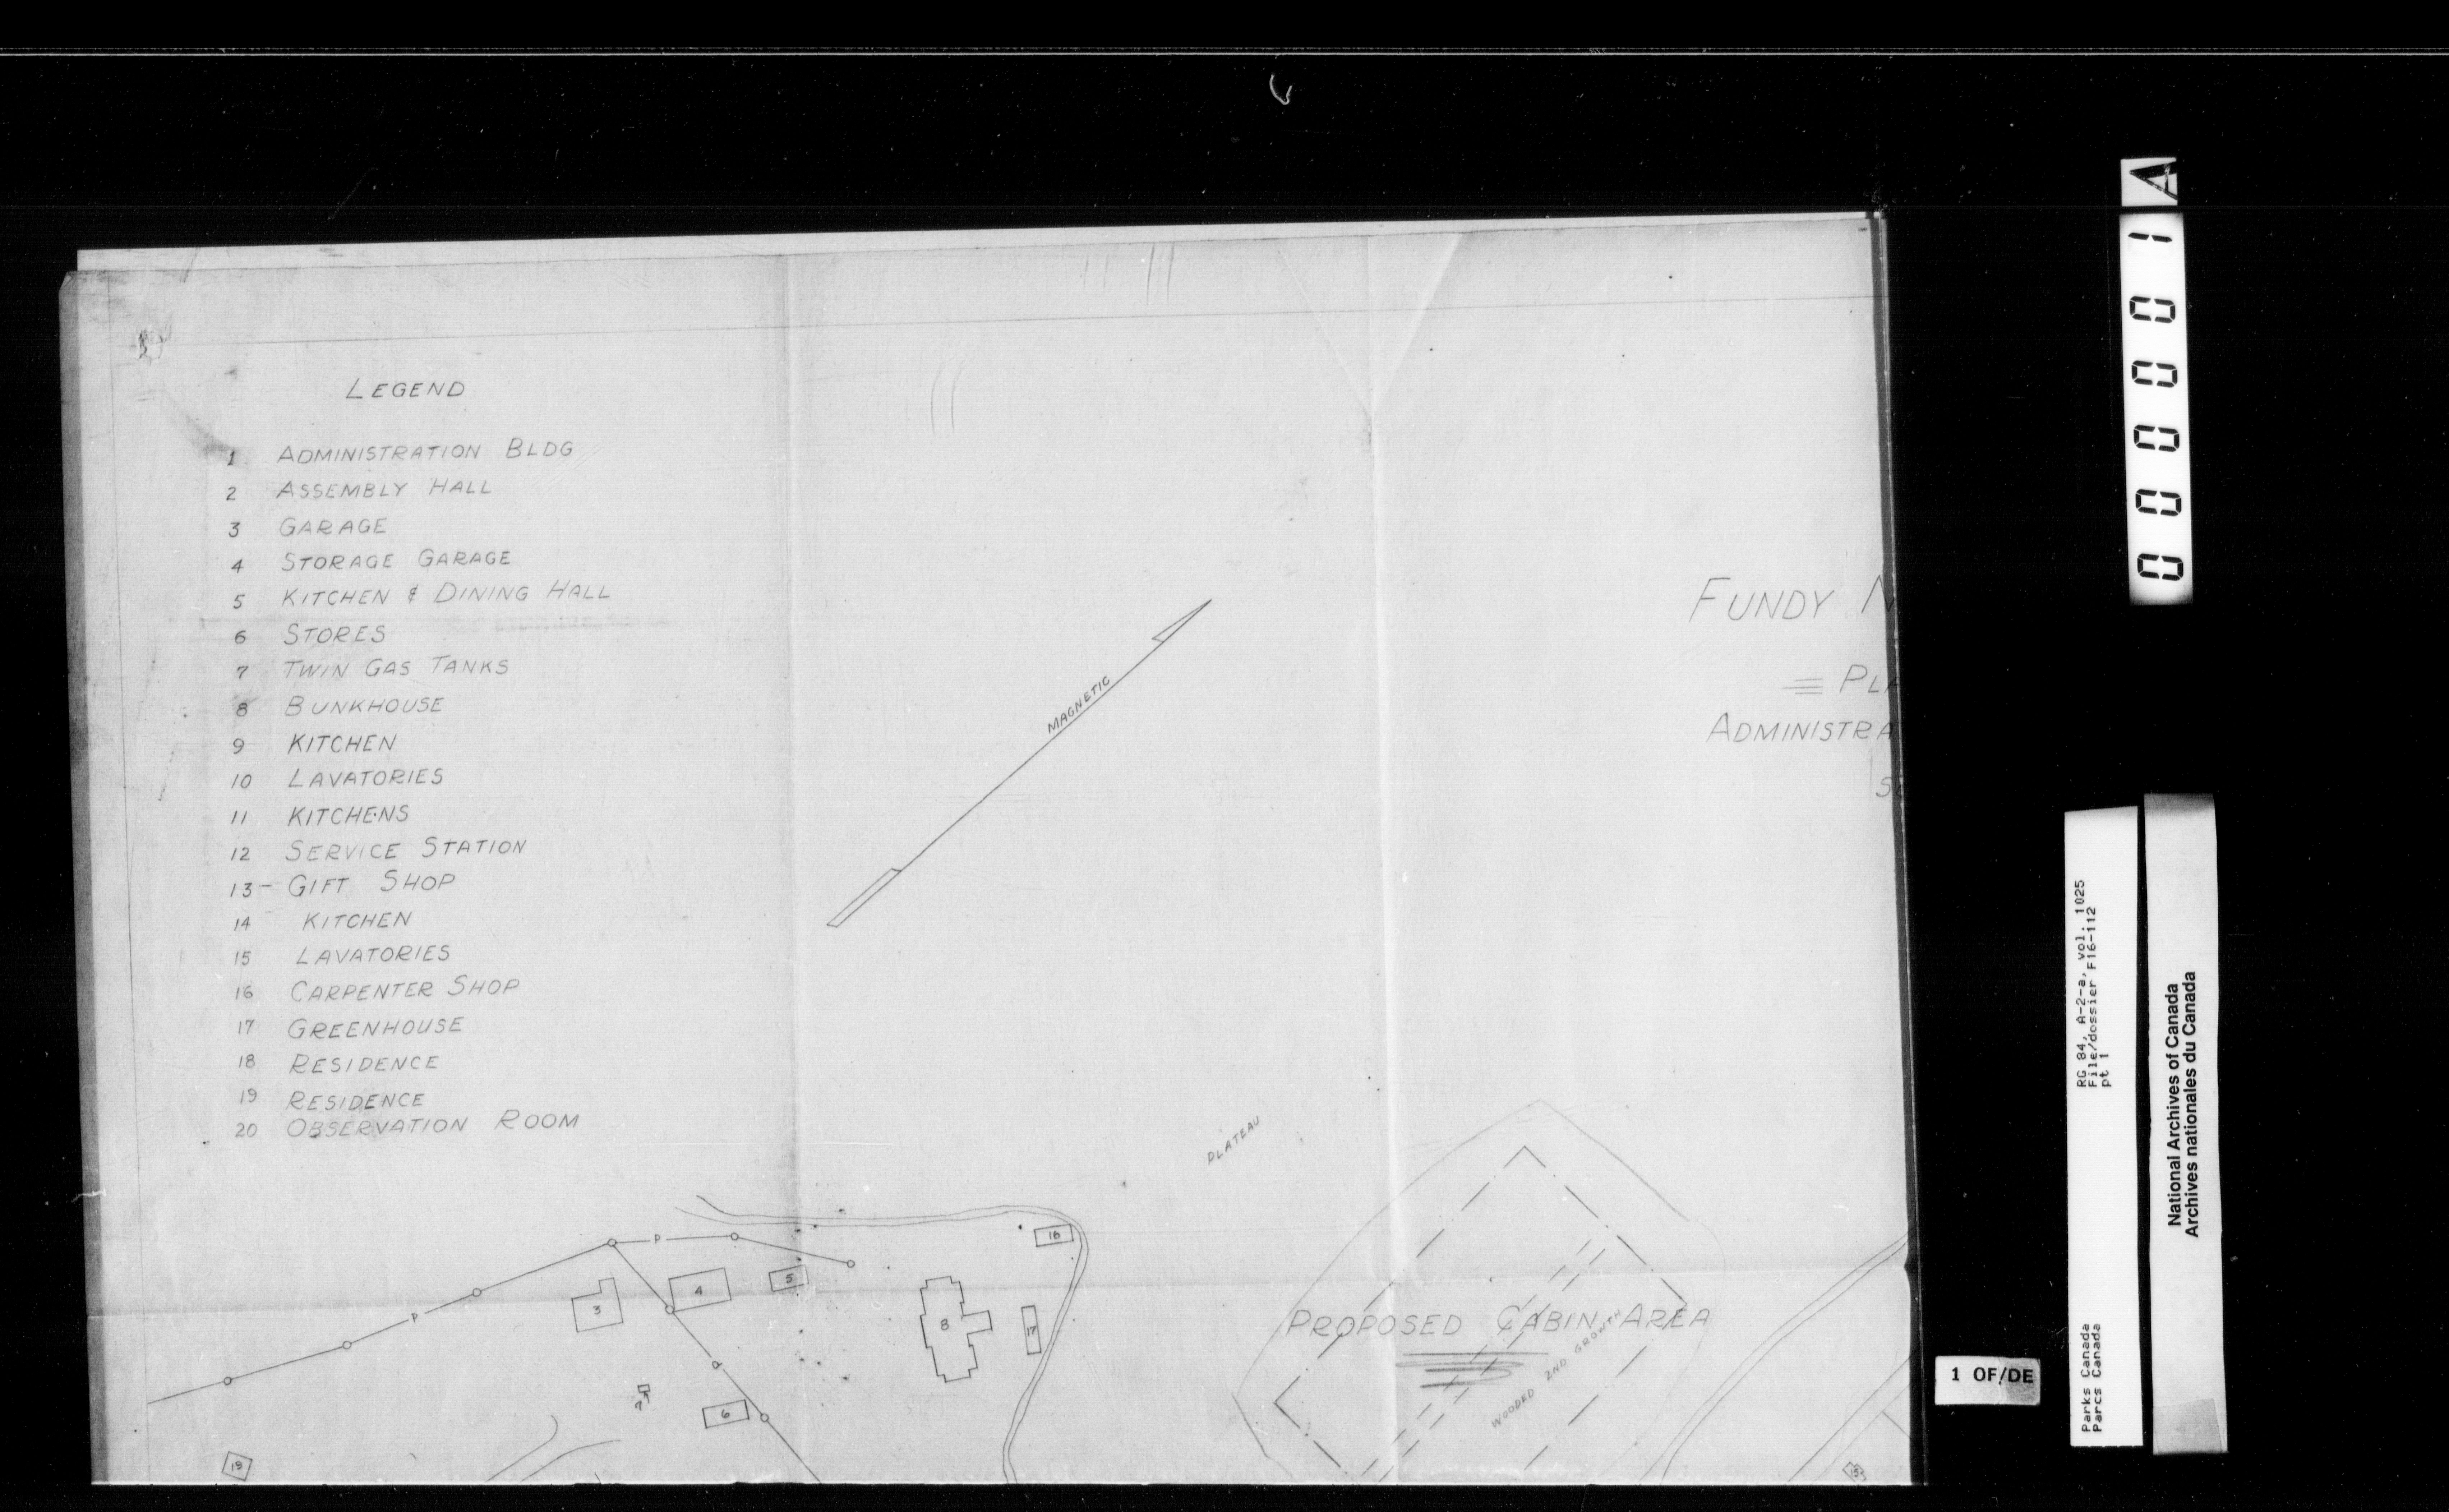 LEGEND
1 ADMINISTRATION BLDG
2 ASSEMBLY HALL
3 GARAGE
4 STORAGE GARAGE
5 KITCHEN & DINING HALL
6 STORES
7 TWIN GAS TANKS
8 BUNKHOUSE
9 KITCHEN
10 LAVATORIES
11 KITCHENS
12 SERVICE STATION
13 - GIFT SHOP
14 KITCHEN
15 LAVATORIES
16 CARPENTER SHOP
17 GREENHOUSE
18 RESIDENCE
19 RESIDENCE
20 OBSERVATION ROOM
MAGNETIC
FUNDY N
= PLA
ADMINISTRA
PLATEAU
P
P
P
3
4
5
6
7
8
16
17
19
PROPOSED CABIN AREA
WOODED 2ND GROWTH
15
000001
A
RG 84, A-2-a, vol. 1025
File/dossier F16-112
pt 1
Parks Canada
Parcs Canada
National Archives of Canada
Archives nationales du Canada
1 OF/DE